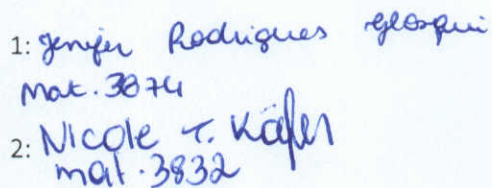 1: Jenifer Rodrigues
Mat. 3874
2: Nicole T. Käfer
mat. 3832